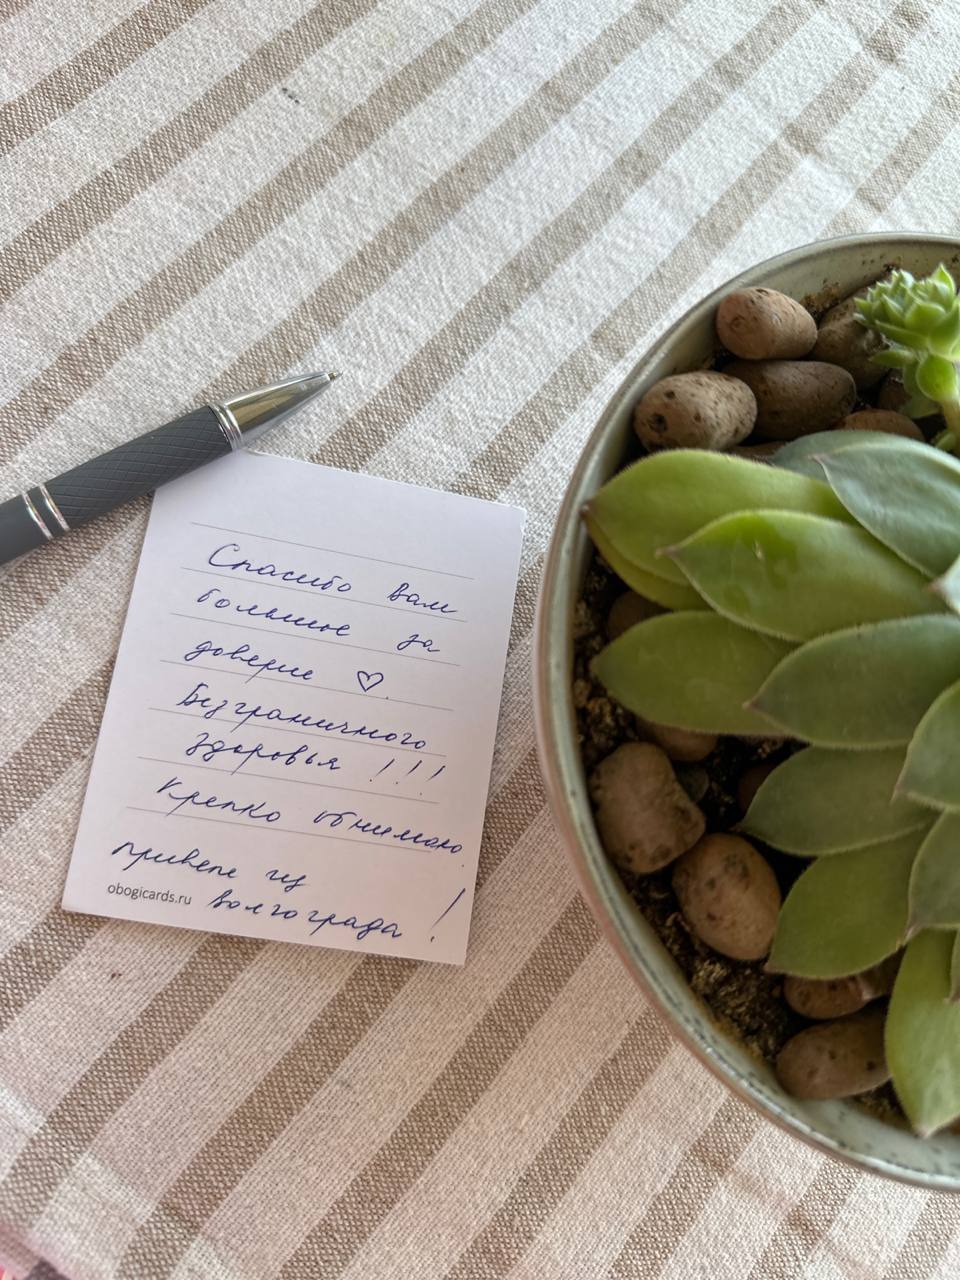 Спасибо вам
большое за
доверие ♡.
Безграничного
здоровья !!!
Крепко обнимаю
привет из
Волгограда !
obogicards.ru